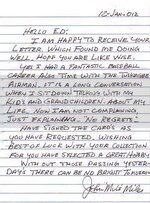 10-JAN-012
HELLO ED:
I AM HAPPY TO RECEIVE YOUR
LETTER, WHICH FOUND ME DOING
WELL, HOPE YOU ARE LIKE WISE.
YES I HAD A FANTASTIC BASEBALL
CAREER ALSO TIME WITH THE TUSKEGEE
AIRMAN. IT IS A LONG CONVERSATION
WHEN I SIT DOWN TODAY WITH MY
KIDS AND GRANDCHILDREN ABOUT MY
LIFE. NOW I AM NOT COMPLAINING
JUST EXPLAINING "NO REGRETS"
HAVE SIGNED THE CARDS AS
YOU HAVE REQUESTED. WISHING
BEST OF LUCK WITH YOUR COLLECTION
FOR YOU HAVE SELECTED A GREAT HOBBY
WITH OUT THOSE PASSING YESTER-
DAY'S THERE CAN BE NO BRIGHT TOMORROW
John "Mule" Miles